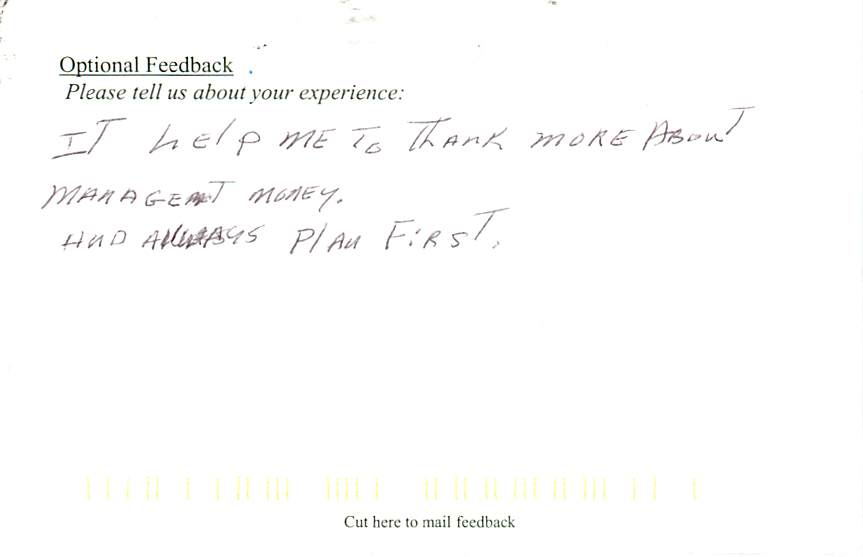 Optional Feedback
Please tell us about your experience:
IT help ME To THANK MORE ABOUT
MANAGEMT MONEY.
AND ALWAYS PlAN FiRST.
Cut here to mail feedback